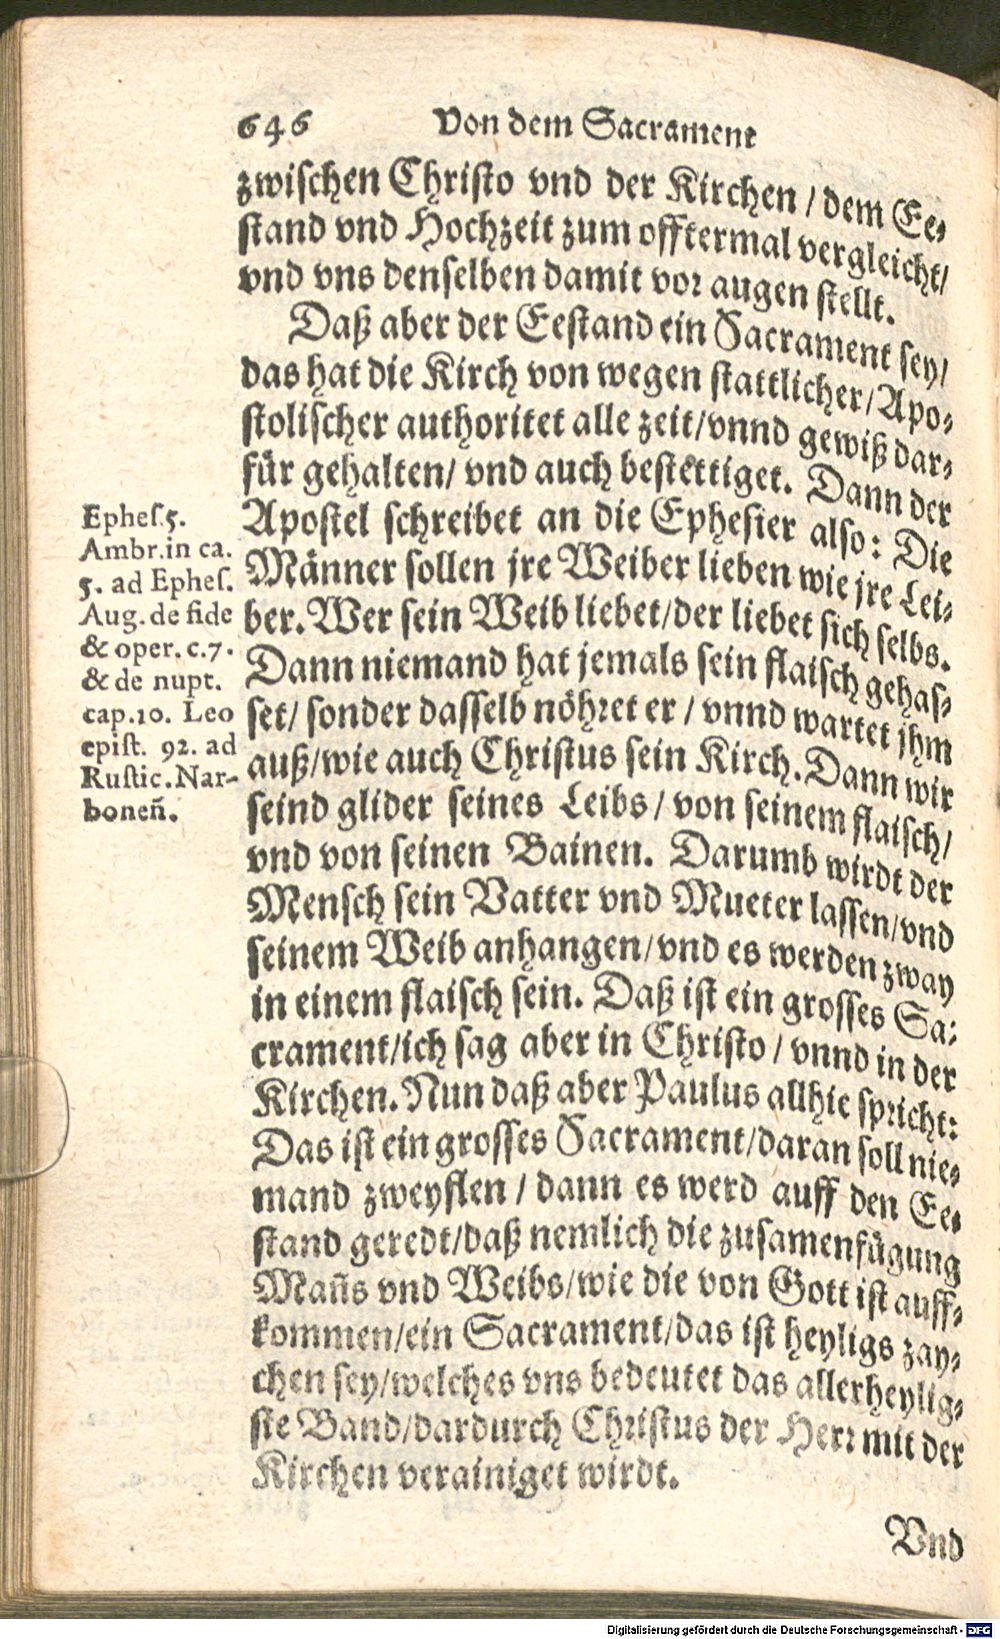 646 Von dem Sacrament
zwischen Christo vnd der Kirchen / dem Ee-
stand vnd Hochzeit zum offtermal vergleicht/
vnd vns denselben damit vor augen stellt.
Daß aber der Eestand ein Sacrament sey/
das hat die Kirch von wegen stattlicher/Apo-
stolischer authoritet alle zeit/vnnd gewiß dar-
für gehalten/ vnd auch bestettiget. Dann der
Apostel schreibet an die Ephesier also: Die
Männer sollen jre Weiber lieben wie jre Lei-
ber. Wer sein Weib liebet/der liebet sich selbs.
Dann niemand hat jemals sein flaisch gehas-
set/ sonder dasselb nöhret er / vnnd wartet jhm
auß/wie auch Christus sein Kirch. Dann wir
seind glider seines Leibs / von seinem flaisch/
vnd von seinen Bainen. Darumb wirdt der
Mensch sein Vatter vnd Mueter lassen/vnd
seinem Weib anhangen/vnd es werden zway
in einem flaisch sein. Daß ist ein grosses Sa-
crament/ich sag aber in Christo / vnnd in der
Kirchen. Nun daß aber Paulus allhie spricht:
Das ist ein grosses Sacrament/daran soll nie-
mand zweyflen / dann es werd auff den Ee-
stand geredt/daß nemlich die zusamenfügung
Mañs vnd Weibs/wie die von Gott ist auff-
kommen/ein Sacrament/das ist heyligs zay-
chen sey/welches vns bedeutet das allerheylig-
ste Band/dardurch Christus der Herr mit der
Kirchen verainiget wirdt.
Vnd
Ephes.5.
Ambr.in ca.
5. ad Ephes.
Aug. de fide
& oper. c.7.
& de nupt.
cap.10. Leo
epist. 92. ad
Rustic. Nar-
boneñ.
Digitalisierung gefördert durch die Deutsche Forschungsgemeinschaft - DFG